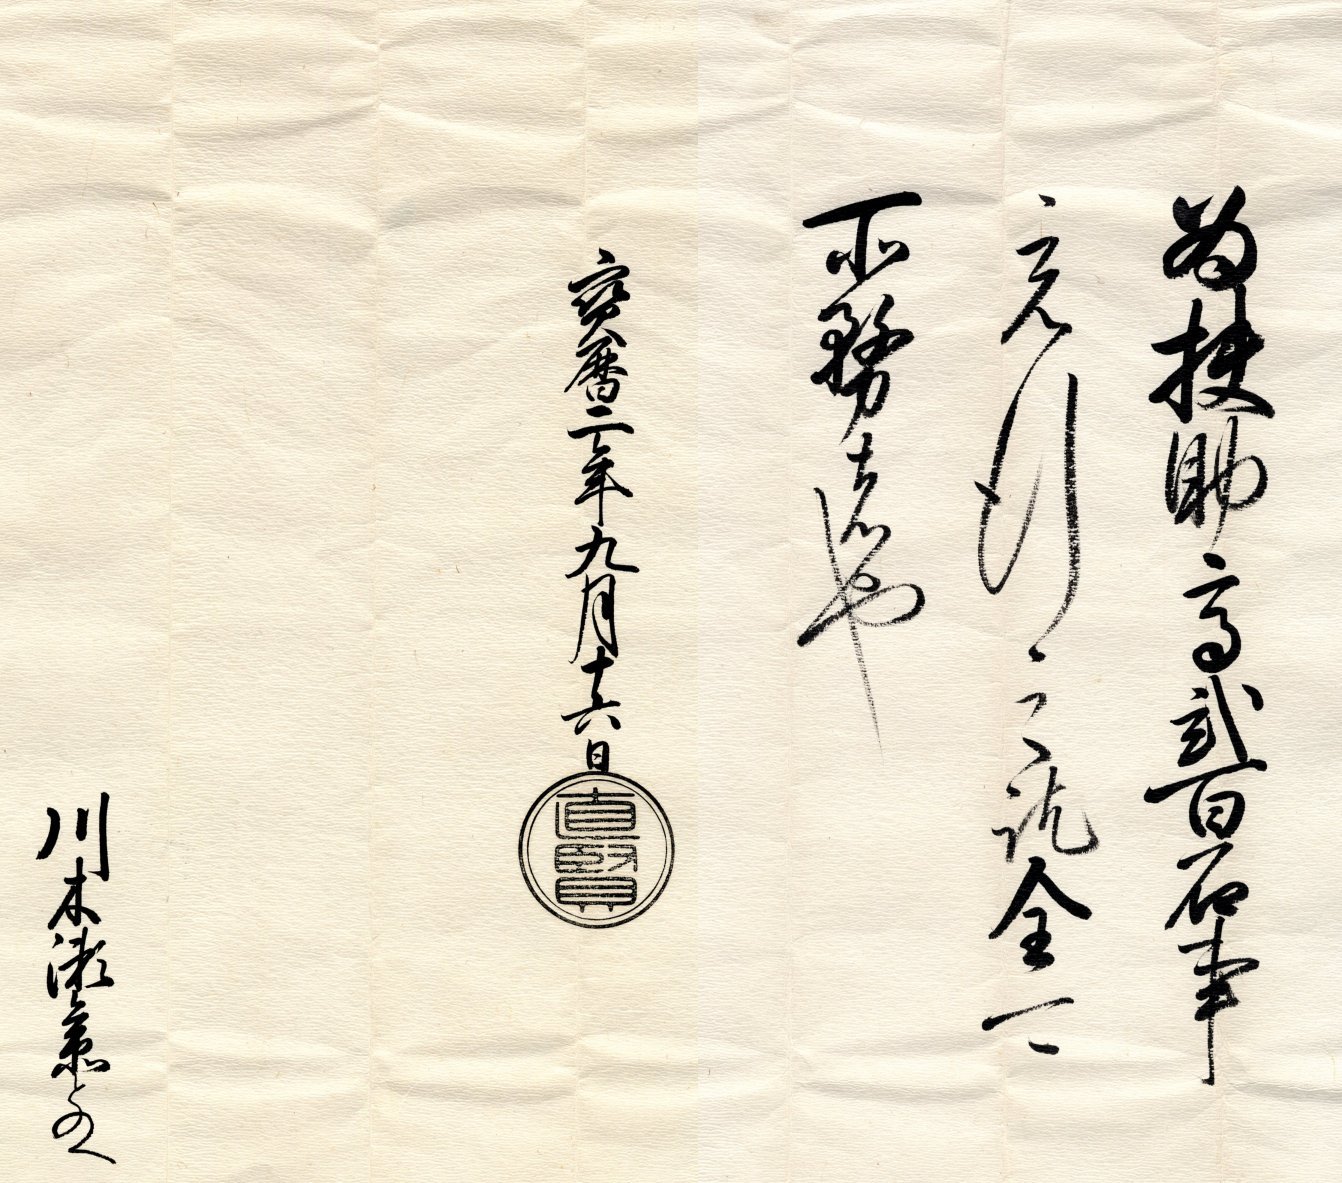 為扶助高弐百石事
充行之訖全可
所務者也
寶暦二年九月十六日
直賢
川木瀬とのへ